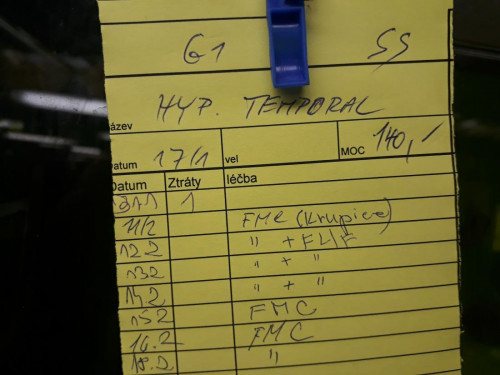 G1 SS
název HYP. TEMPORAL
Datum 17/1 vel MOC 140,-
Datum Ztráty léčba
1
11/2 FMC (Krupice)
12 2 " + FLIF
13 2 " + "
14 2 " + "
15 2 FMC
16.2 FMC
18.2 "